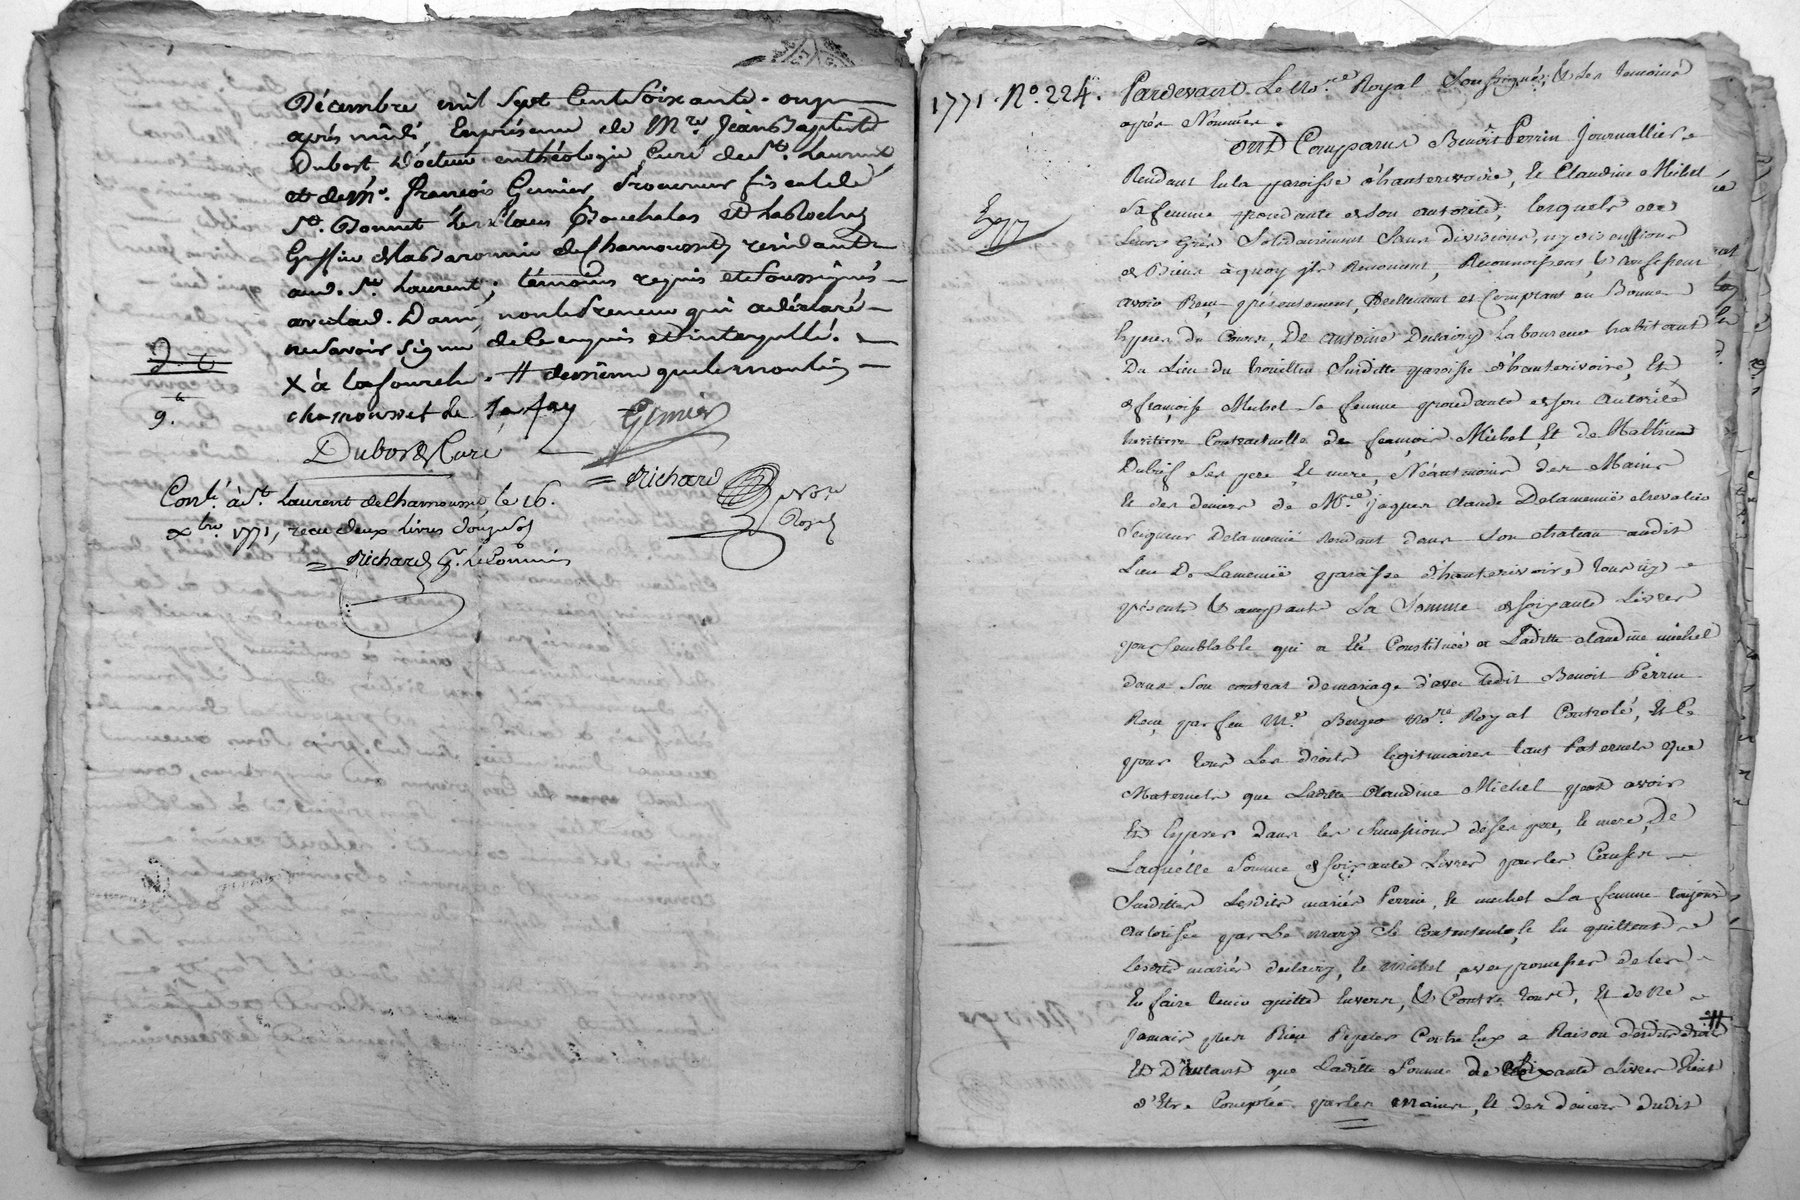 Décembre mil Sept Cent Soixante . onze
après midi, En présence de Mre. Jean Baptiste
Dubost Docteur en théologie, Curé de St. Laurent
et de Me. françois Grenier, Procureur fiscal de
St. Bonnet
Greffier de la Baronnie de Chamousset, résidants
aud. St. Laurent, témoins requis et Soussignés
avec lad. Dame, non le preneur qui a déclaré
ne Savoir Signer de ce enquis et interpellé.
X à la fourche . # derrière que le moulin
9.
chamousset de
Grenier
Dubost Curé
Richard
Nore
Royal
Conlé. à St. Laurent de Chamousset, le 16.
xbre. 1771, reçu deux livres douze sols
Richard
1771. No. 224. Pardevant Le No.re Royal Soussigné, & Les temoins
après Nommés .
ont Comparus Benoit Perrin Journallier
Rendant En la paroisse d'hauterivoire, Et Claudine Michel
Sa femme procedante de son autorité, lesquels de
Leurs Grés Solidairement Sans division, ny discussions
de Biens à quoy ils Renoncent, Reconnoissent, & Confessent
avoir Reçu présentement, Réellement et Comptant en Bonnes
Espèces du Cours, De antoine Dulavy Laboureur habitant
Du Lieu du trouillu Susditte paroisse d'hauterivoire, Et
de françoise Michel Sa femme procedante de son Autorité
heritiere Contractuelle de françois Michel, Et de
Ses pere Et mere, Néantmoins des Mains
Et des deniers de Mre. Jaques Claude Delamenüe chevalier
Seigneur Delamenüe Rendant dans Son chateau audit
Lieu De Lamenüe paroisse d'hauterivoire tous icy
présents & acceptants La Somme de soixante Livres
par semblable qui a Eté Constituée a Laditte claudine michel
dans Son contrat de mariage d'avec ledit Benoit Perrin
Reçu par feu Me. Berger No.re Royal Controlé, Et Ce
pour tous Les droits legitimaires tant Paternels que
Maternels que Laditte Claudine Michel peut avoir
Et Esperer dans les Successions de ses pere, Et mere, De
Laquelle Somme de soixante Livres pour les Causes
Susdittes Lesdits mariés Perrin, Et michel La femme toujours
autorisée par Le mary Se Contentent, Et En quittent
Lesdits mariés dulavy, Et michel, avec promesses de les
En faire tenir quitte Envers, & Contre tous, Et de Ne
Jamais plus Rien Repeter Contre Eux a Raison desdits droits #
Et D'autant que Laditte Somme de Soixante Livres Vient
d'Etre Comptée par les mains, Et des deniers dudit